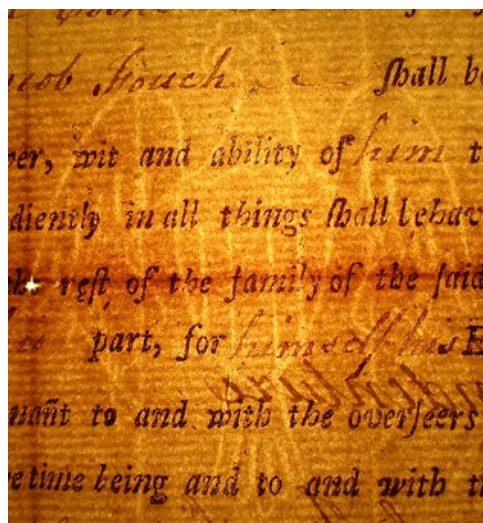 ſhall be
wit and ability of him
in all things ſhall behav
reſt of the family of the ſaid
part, for himself his
to and with the overſeers
time being and to and with